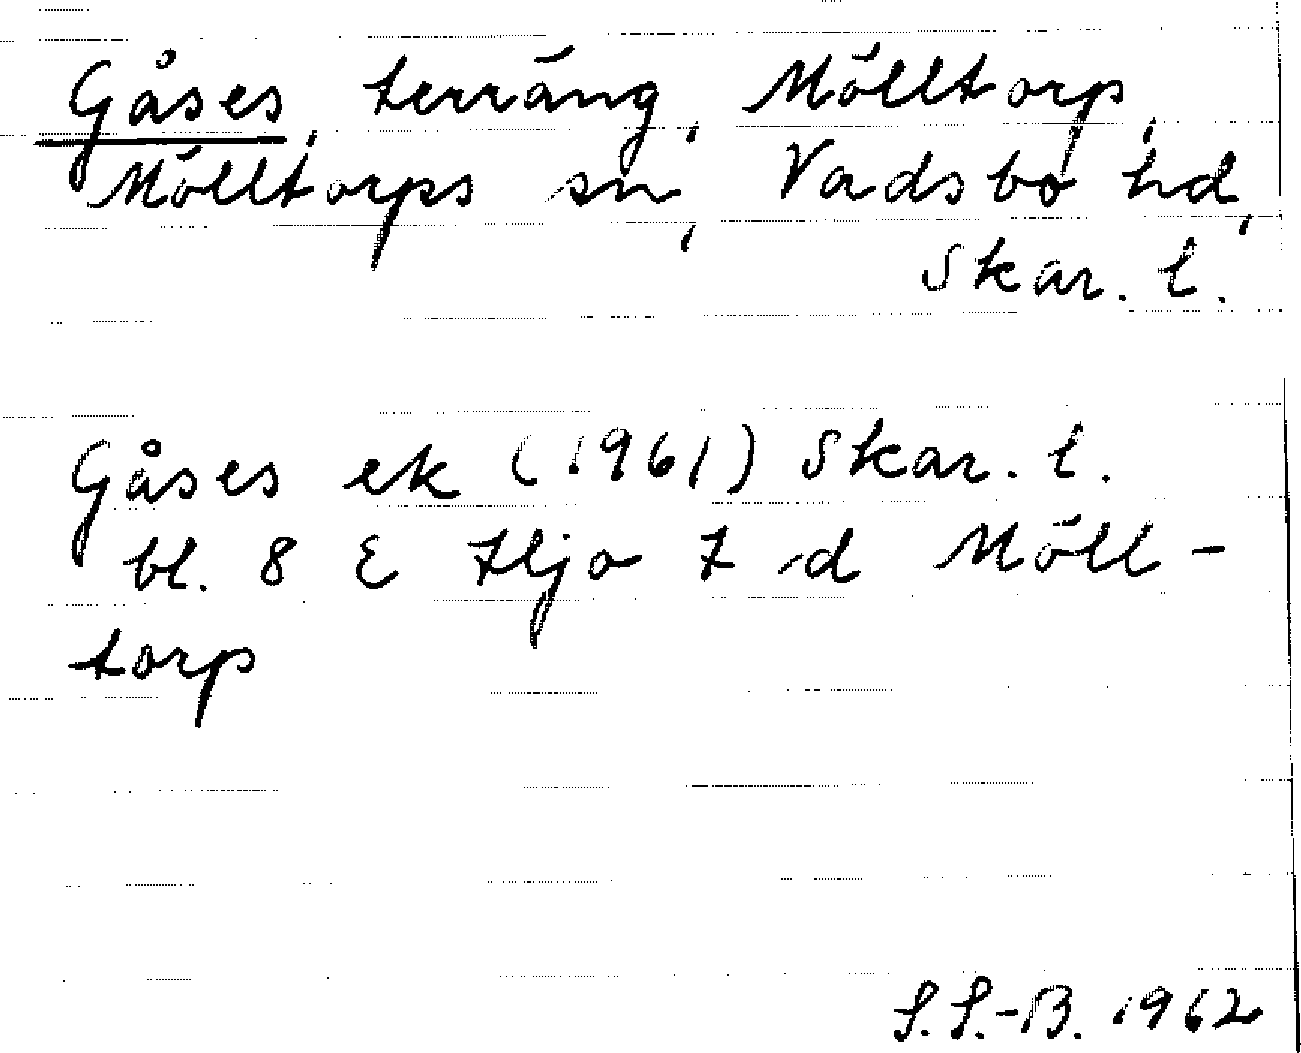 Gåses, terräng, Mölltorp,
Mölltorps sn, Vadsbo hd,
Skar. l.
Gåses ek (1961) Skar. l.
bl. 8 E Hjo 7 d Möll-
torp
S.S.-B. 1962